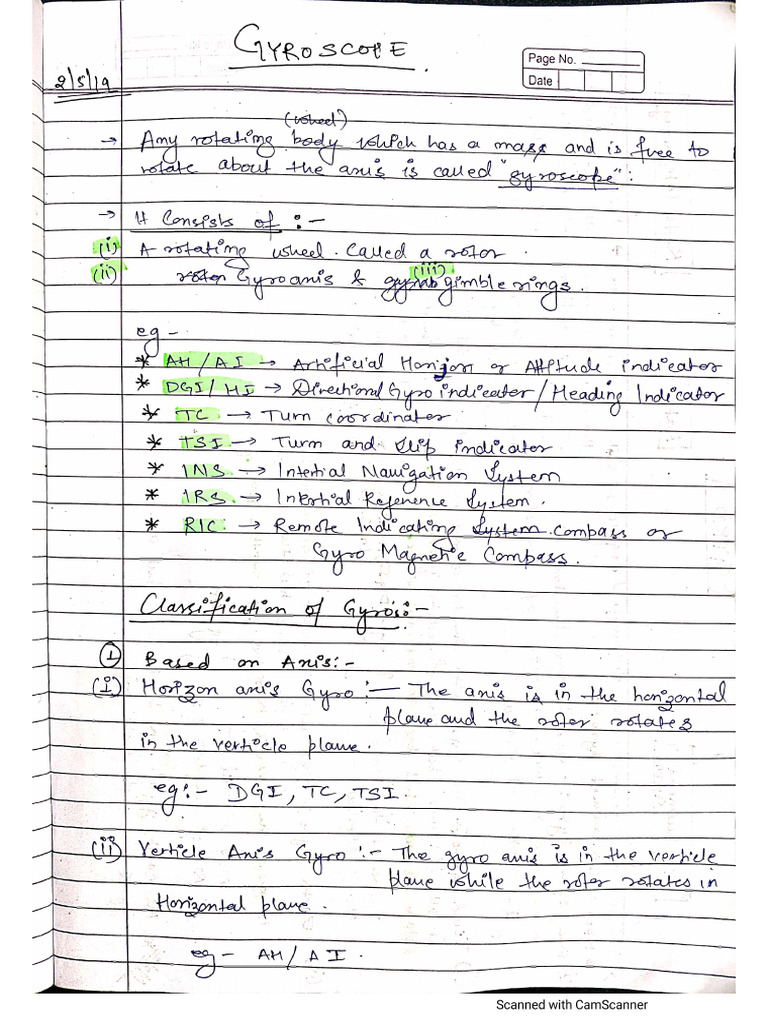 GYROSCOPE
Page No.
Date
2/5/19
(wheel)
→ Any rotating body which has a mass and is free to
rotate about the axis is called "gyroscope":
→ It Consists of :-
(i) A rotating wheel. Called a rotor.
(ii) Gyro axis & (iii) gimble rings.
eg -
* AH/AI → Artificial Horizon or Attitude indicator
* DGI/HI → Directional Gyro indicator/Heading Indicator
* TC → Turn coordinator
* TSI → Turn and Slip indicator
* INS → Intertial Navigation System
* IRS → Intertial Reference System.
* RIC: → Remote Indicating System compass or
Gyro Magnetic Compass.
Classification of Gyros:-
① Based on Axis:-
(i) Horizon axis Gyro :- The axis is in the horizontal
plane and the rotor rotates
in the verticle plane.
eg:- DGI, TC, TSI.
(ii) Verticle Axis Gyro :- The gyro axis is in the verticle
plane while the rotor rotates in
Horizontal plane.
eg- AH/AI.
Scanned with CamScanner